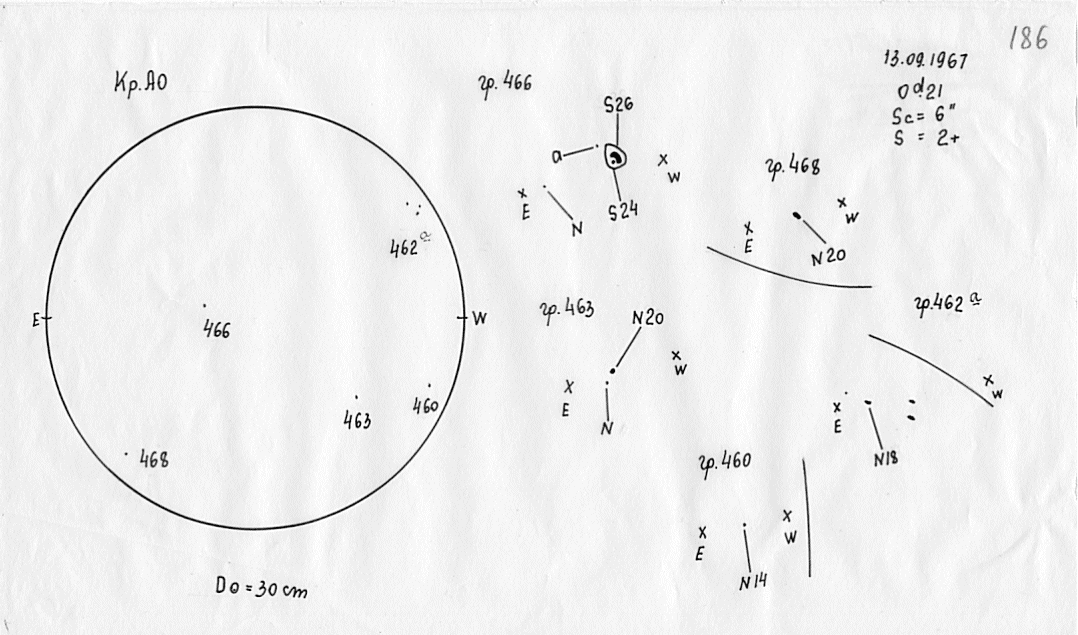 186
13.09.1967
0ᵈ.21
Sc = 6"
S = 2+
Кр.АО
E
W
462ª
466
463
460
468
D⊙ = 30 cm
гр.466
S26
a
S24
x
E
N
x
W
гр.468
x
E
x
W
N20
гр.463
N20
x
E
x
W
N
гр.462ª
x
E
x
W
N18
гр.460
x
E
x
W
N14